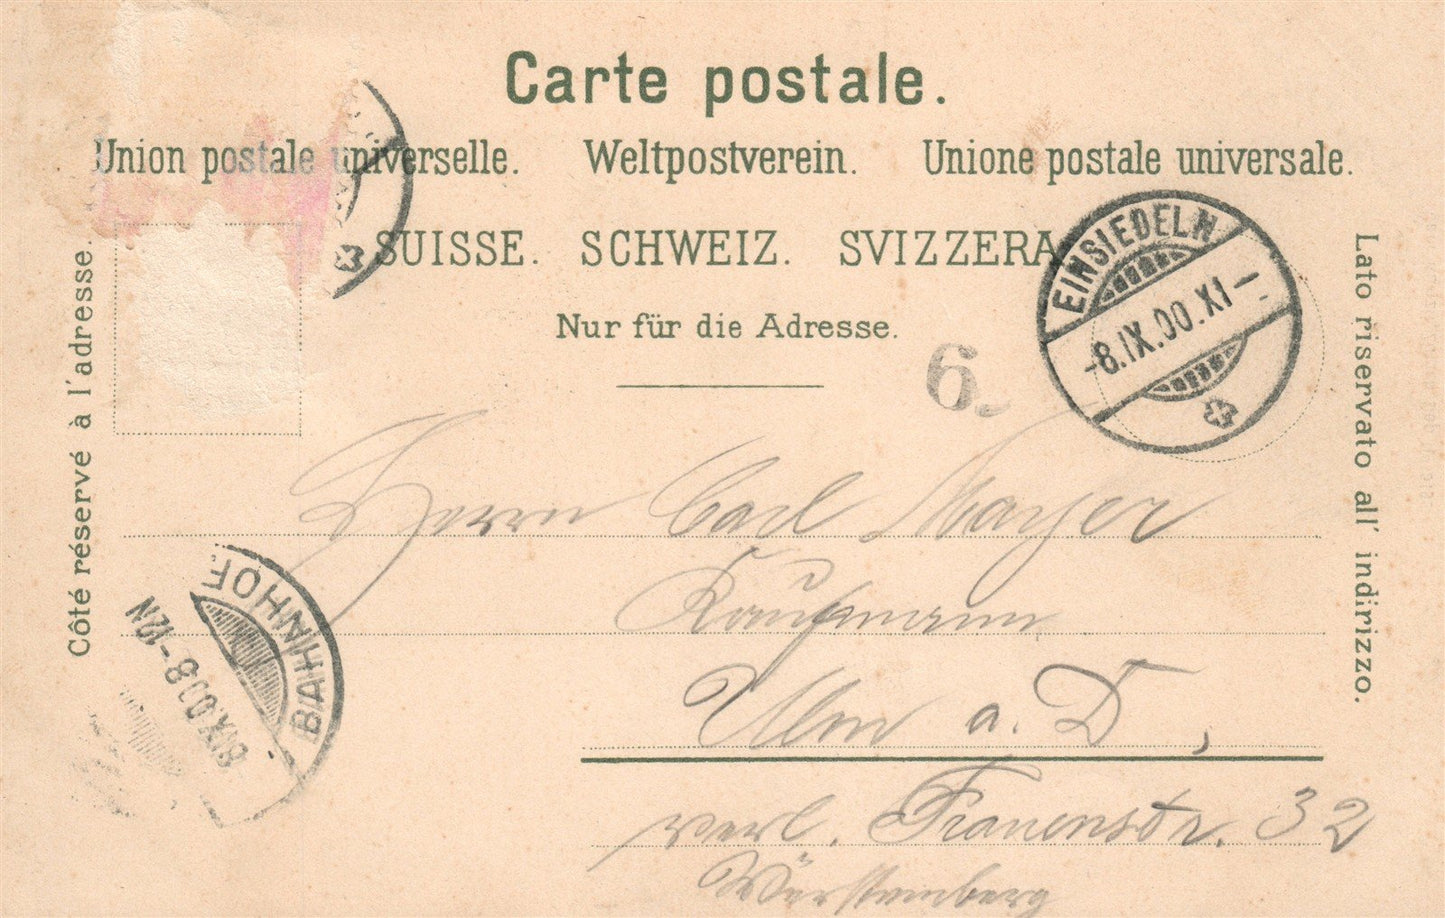 Carte postale.
Union postale universelle. Weltpostverein. Unione postale universale.
SUISSE. SCHWEIZ. SVIZZERA
Nur für die Adresse.
Côté réservé à l'adresse.
Lato riservato all' indirizzo.
EINSIEDELN
-8.IX.00.XI-
6.
Herrn Carl Mayer
Kaufmann
Ulm a. D,
verl. Frauenstr. 32
Württemberg
BAHNHOF.
8.IX.00.8-12N